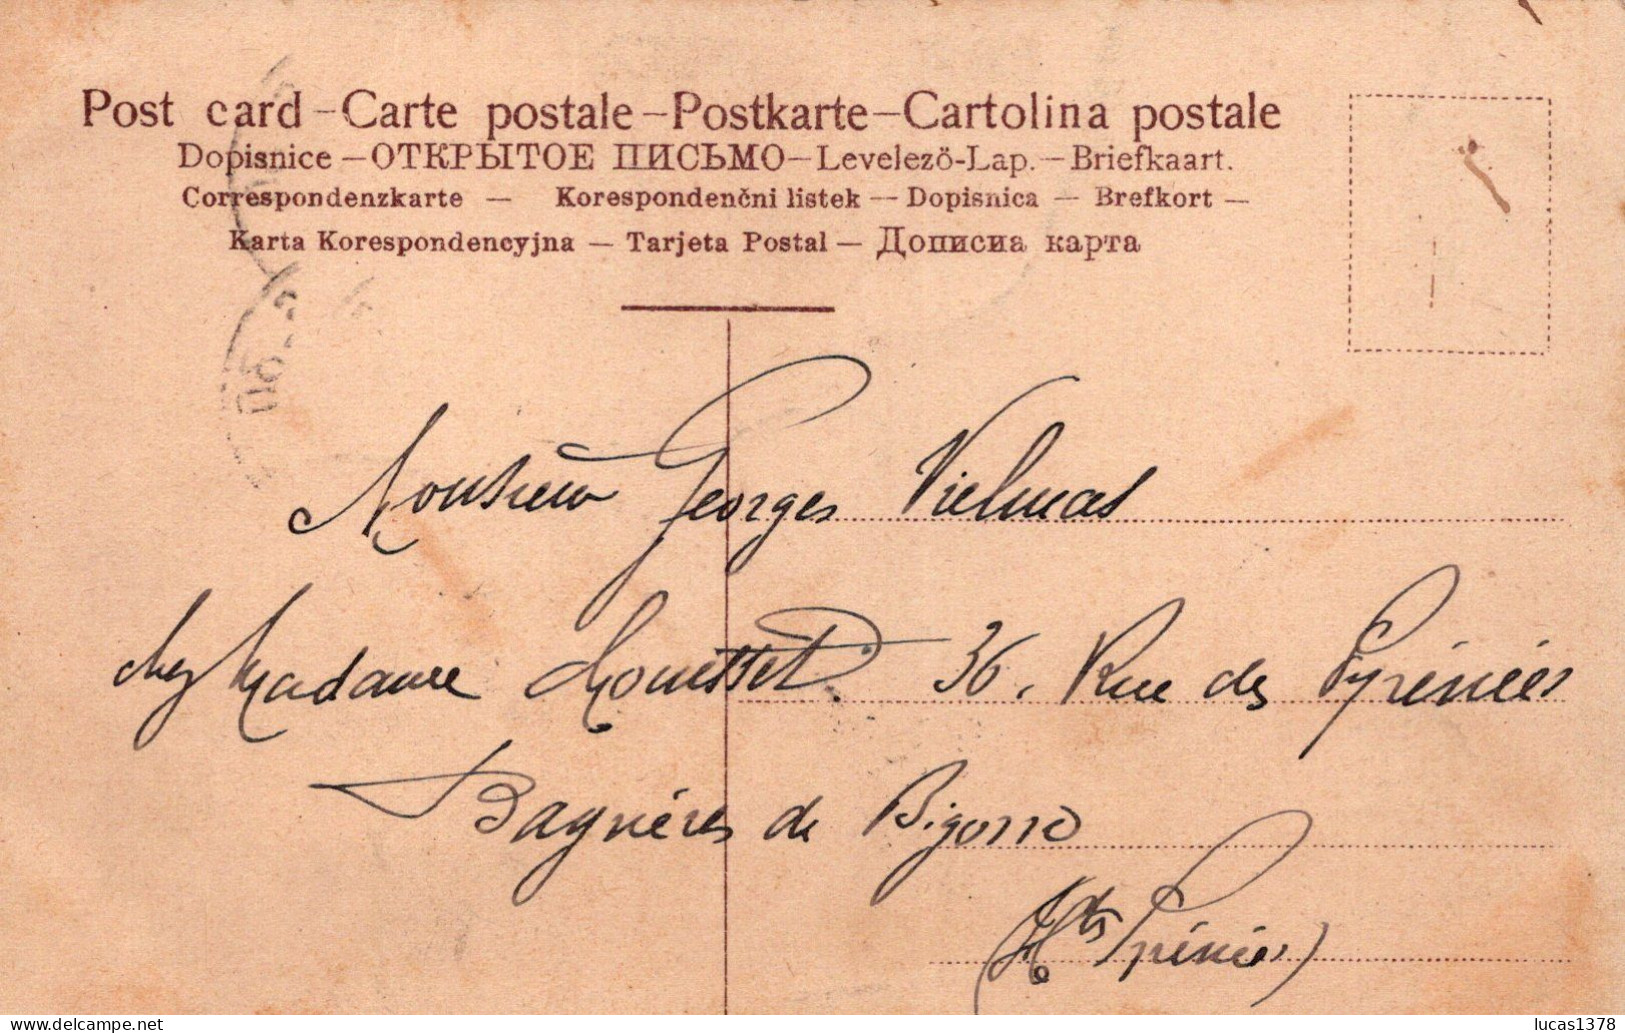 Post card – Carte postale – Postkarte – Cartolina postale
Dopisnice – ОТКРЫТОЕ ПИСЬМО – Levelező-Lap. – Briefkaart.
Correspondenzkarte – Korespondenčni listek – Dopisnica – Brefkort –
Karta Korespondencyjna – Tarjeta Postal – Дописна карта
Monsieur Georges Vielmas
chez Madame 36, Rue des Pyrénées
Bagnères de Bigorre
(Htes Pyrénées)
delcampe.net
lucas1378